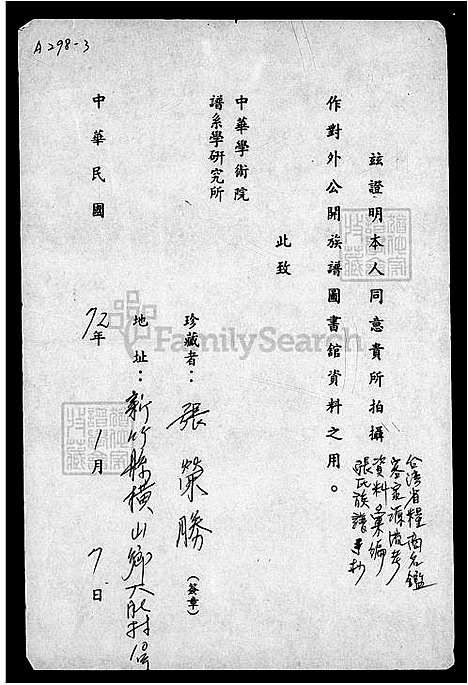 A298-3
茲證明本人同意貴所拍攝
台湾省糧商名鑑
客家源流考
資料彙編
張氏族譜手抄
作對外公開族譜圖書館資料之用。
此致
中華學術院
譜系學研究所
珍藏者：張榮勝(簽章)
地址：新竹縣橫山鄉大肚村
中華民國72年1月7日
FamilySearch